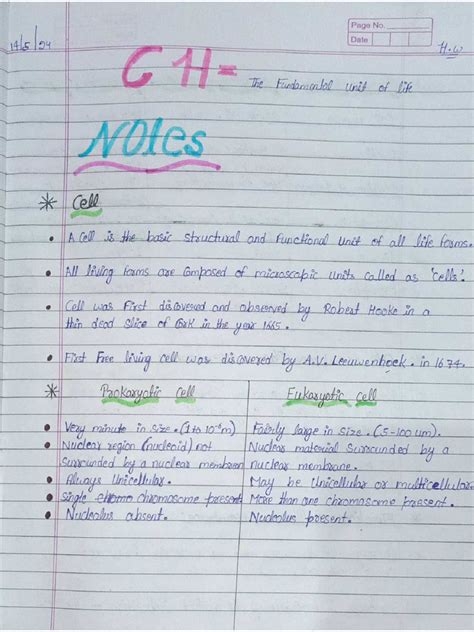 Page No.
Date
14/5/24
H.W
CH= The Fundamental unit of life
Notes
* Cell
• A Cell is the basic structural and functional unit of all life forms.
• All living forms are composed of microscopic units called as 'cells'.
• Cell was First discovered and observed by Robert Hooke in a
thin dead slice of Cork in the year 1665.
• First Free living cell was discovered by A.V. Leeuwenhoek. in 1674.
* Prokaryotic cell Eukaryotic cell
• Very minute in size. (1 to 10⁻⁶m) Fairly large in size. (5-100 um).
• Nuclear region (nucleoid) not Nuclear material surrounded by a
surrounded by a nuclear membrane nuclear membrane.
• Always Unicellular. May be Unicellular or multicellular.
• single chromosome present More than one chromosome present.
• Nucleolus absent. Nucleolus present.